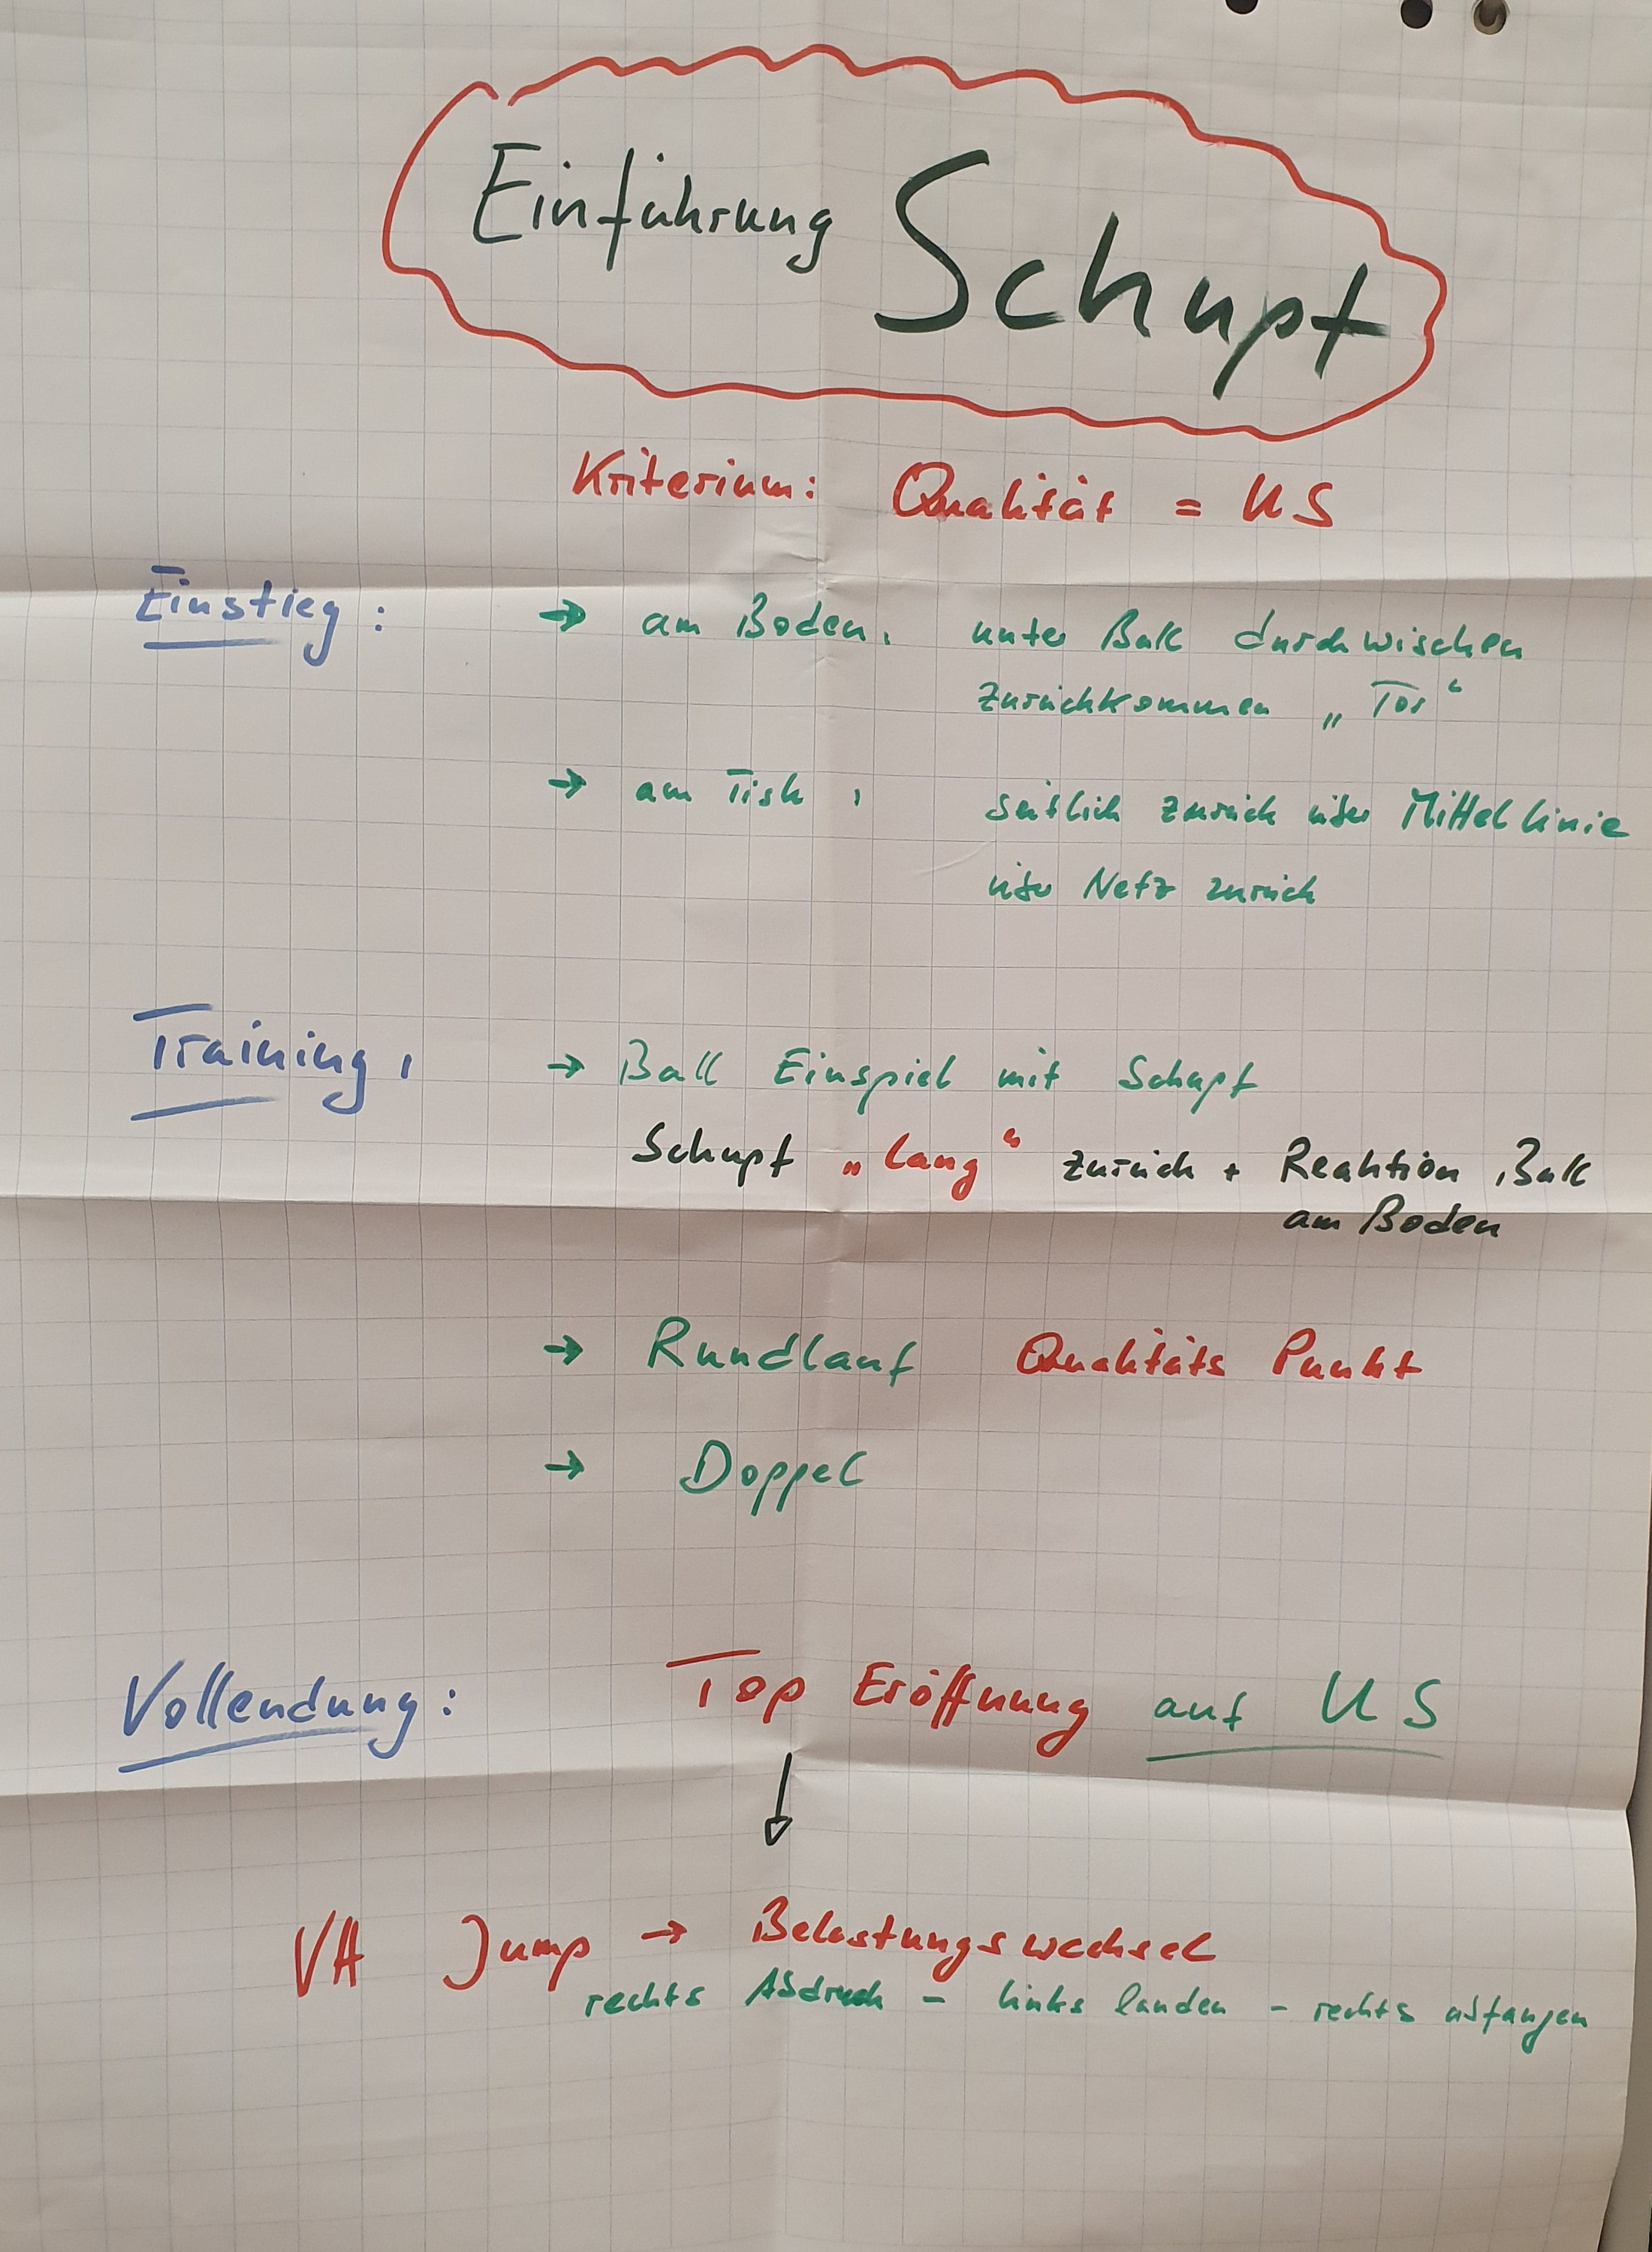 Einführung Schupf
Kriterium: Qualität = US
Einstieg: → am Boden: unter Ball durchwischen
zurückkommen „Tor“
→ am Tisch: seitlich zurück über Mittellinie
über Netz zurück
Training: → Ball Einspiel mit Schupf
Schupf „lang“ zurück + Reaktion Ball
am Boden
→ Rundlauf Qualitäts Punkt
→ Doppel
Vollendung: Top Eröffnung auf US
↓
VH Jump → Belastungswechsel
rechts Abdruck - links landen - rechts abfangen